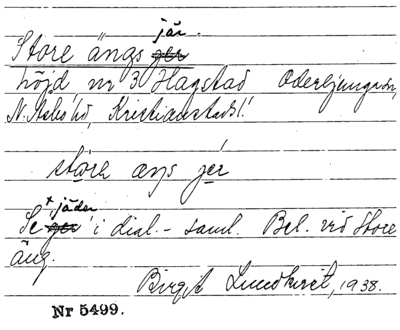 Store ängs ger jär.
höjd, nr 3 Hagstad, Oderljunga sn,
N. Åsbo hd, Kristianstads l.
störe æŋs jér
Se ger × jäder i dial.- saml. Bel. vid Store
äng.
Birgit Lundkvist, 1938.
Nr 5499.